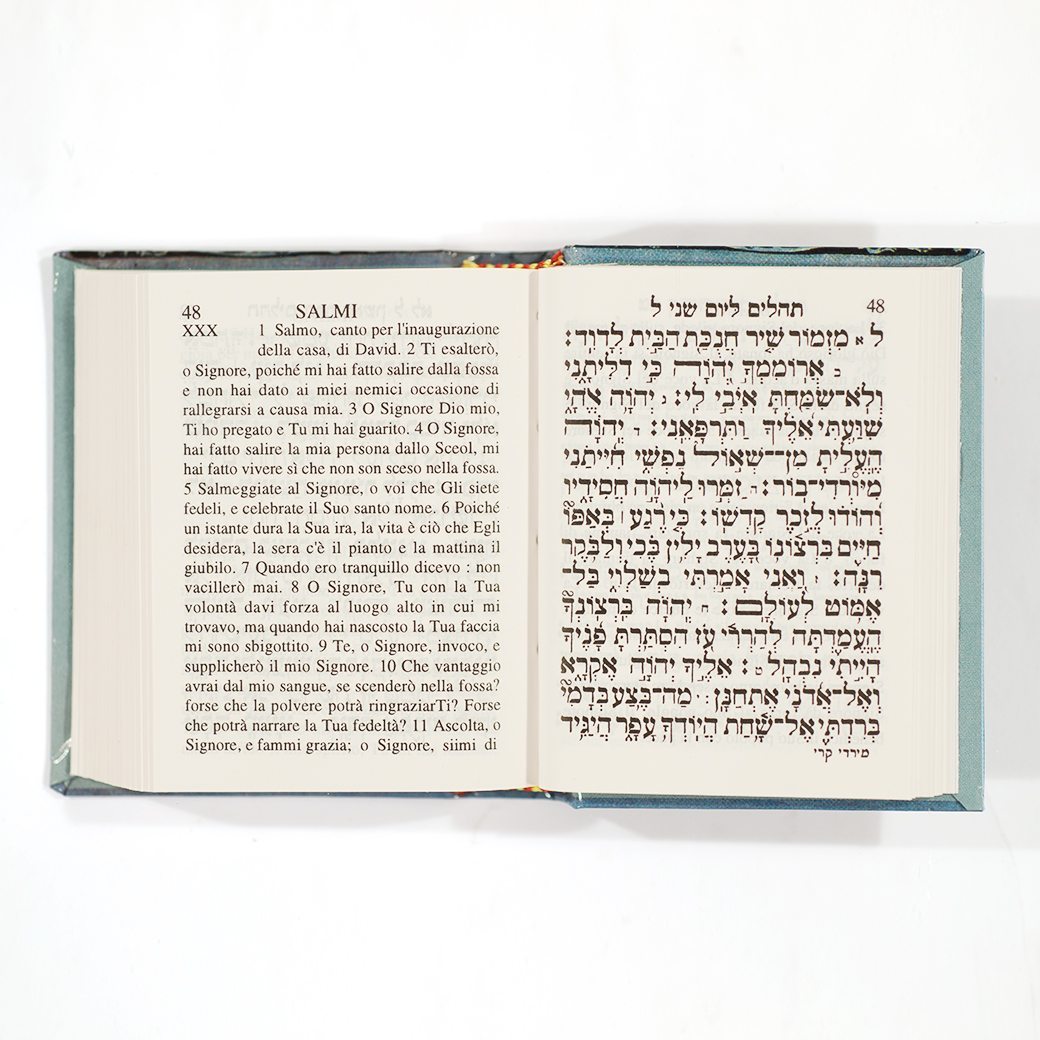 48 SALMI
XXX 1 Salmo, canto per l'inaugurazione
della casa, di David. 2 Ti esalterò,
o Signore, poiché mi hai fatto salire dalla fossa
e non hai dato ai miei nemici occasione di
rallegrarsi a causa mia. 3 O Signore Dio mio,
Ti ho pregato e Tu mi hai guarito. 4 O Signore,
hai fatto salire la mia persona dallo Sceol, mi
hai fatto vivere sì che non son sceso nella fossa.
5 Salmeggiate al Signore, o voi che Gli siete
fedeli, e celebrate il Suo santo nome. 6 Poiché
un istante dura la Sua ira, la vita è ciò che Egli
desidera, la sera c'è il pianto e la mattina il
giubilo. 7 Quando ero tranquillo dicevo : non
vacillerò mai. 8 O Signore, Tu con la Tua
volontà davi forza al luogo alto in cui mi
trovavo, ma quando hai nascosto la Tua faccia
mi sono sbigottito. 9 Te, o Signore, invoco, e
supplicherò il mio Signore. 10 Che vantaggio
avrai dal mio sangue, se scenderò nella fossa?
forse che la polvere potrà ringraziarTi? Forse
che potrà narrare la Tua fedeltà? 11 Ascolta, o
Signore, e fammi grazia; o Signore, siimi di
תהלים ליום שני ל 48
ל א מִזְמוֹר שִׁיר חֲנֻכַּת הַבַּיִת לְדָוִד׃
ב אֲרוֹמִמְךָ יְהוָה כִּי דִלִּיתָנִי
וְלֹא־שִׂמַּחְתָּ אֹיְבַי לִי׃ ג יְהוָה אֱלֹהָי
שִׁוַּעְתִּי אֵלֶיךָ וַתִּרְפָּאֵנִי׃ ד יְהוָה
הֶעֱלִיתָ מִן־שְׁאוֹל נַפְשִׁי חִיִּיתַנִי
מִיּוֹרְדִי־בוֹר׃ ה זַמְּרוּ לַיהוָה חֲסִידָיו
וְהוֹדוּ לְזֵכֶר קָדְשׁוֹ׃ ו כִּי רֶגַע ׀ בְּאַפּוֹ
חַיִּים בִּרְצוֹנוֹ בָּעֶרֶב יָלִין בֶּכִי וְלַבֹּקֶר
רִנָּה׃ ז וַאֲנִי אָמַרְתִּי בְשַׁלְוִי בַּל־
אֶמּוֹט לְעוֹלָם׃ ח יְהוָה בִּרְצוֹנְךָ
הֶעֱמַדְתָּה לְהַרְרִי עֹז הִסְתַּרְתָּ פָנֶיךָ
הָיִיתִי נִבְהָל׃ ט אֵלֶיךָ יְהוָה אֶקְרָא
וְאֶל־אֲדֹנָי אֶתְחַנָּן׃ י מַה־בֶּצַע בְּדָמִי
בְּרִדְתִּי אֶל־שָׁחַת הֲיוֹדְךָ עָפָר הֲיַגִּיד
מירדי קרי